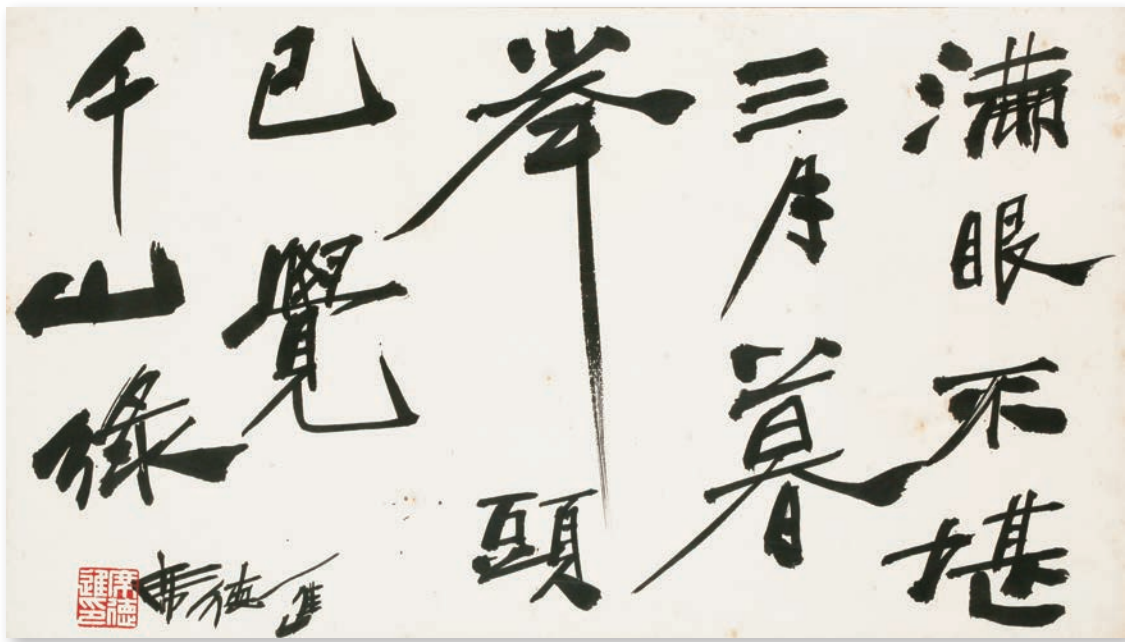 滿眼不堪
三月暮
举頭
已覺
千山綠
席德進
席德進印